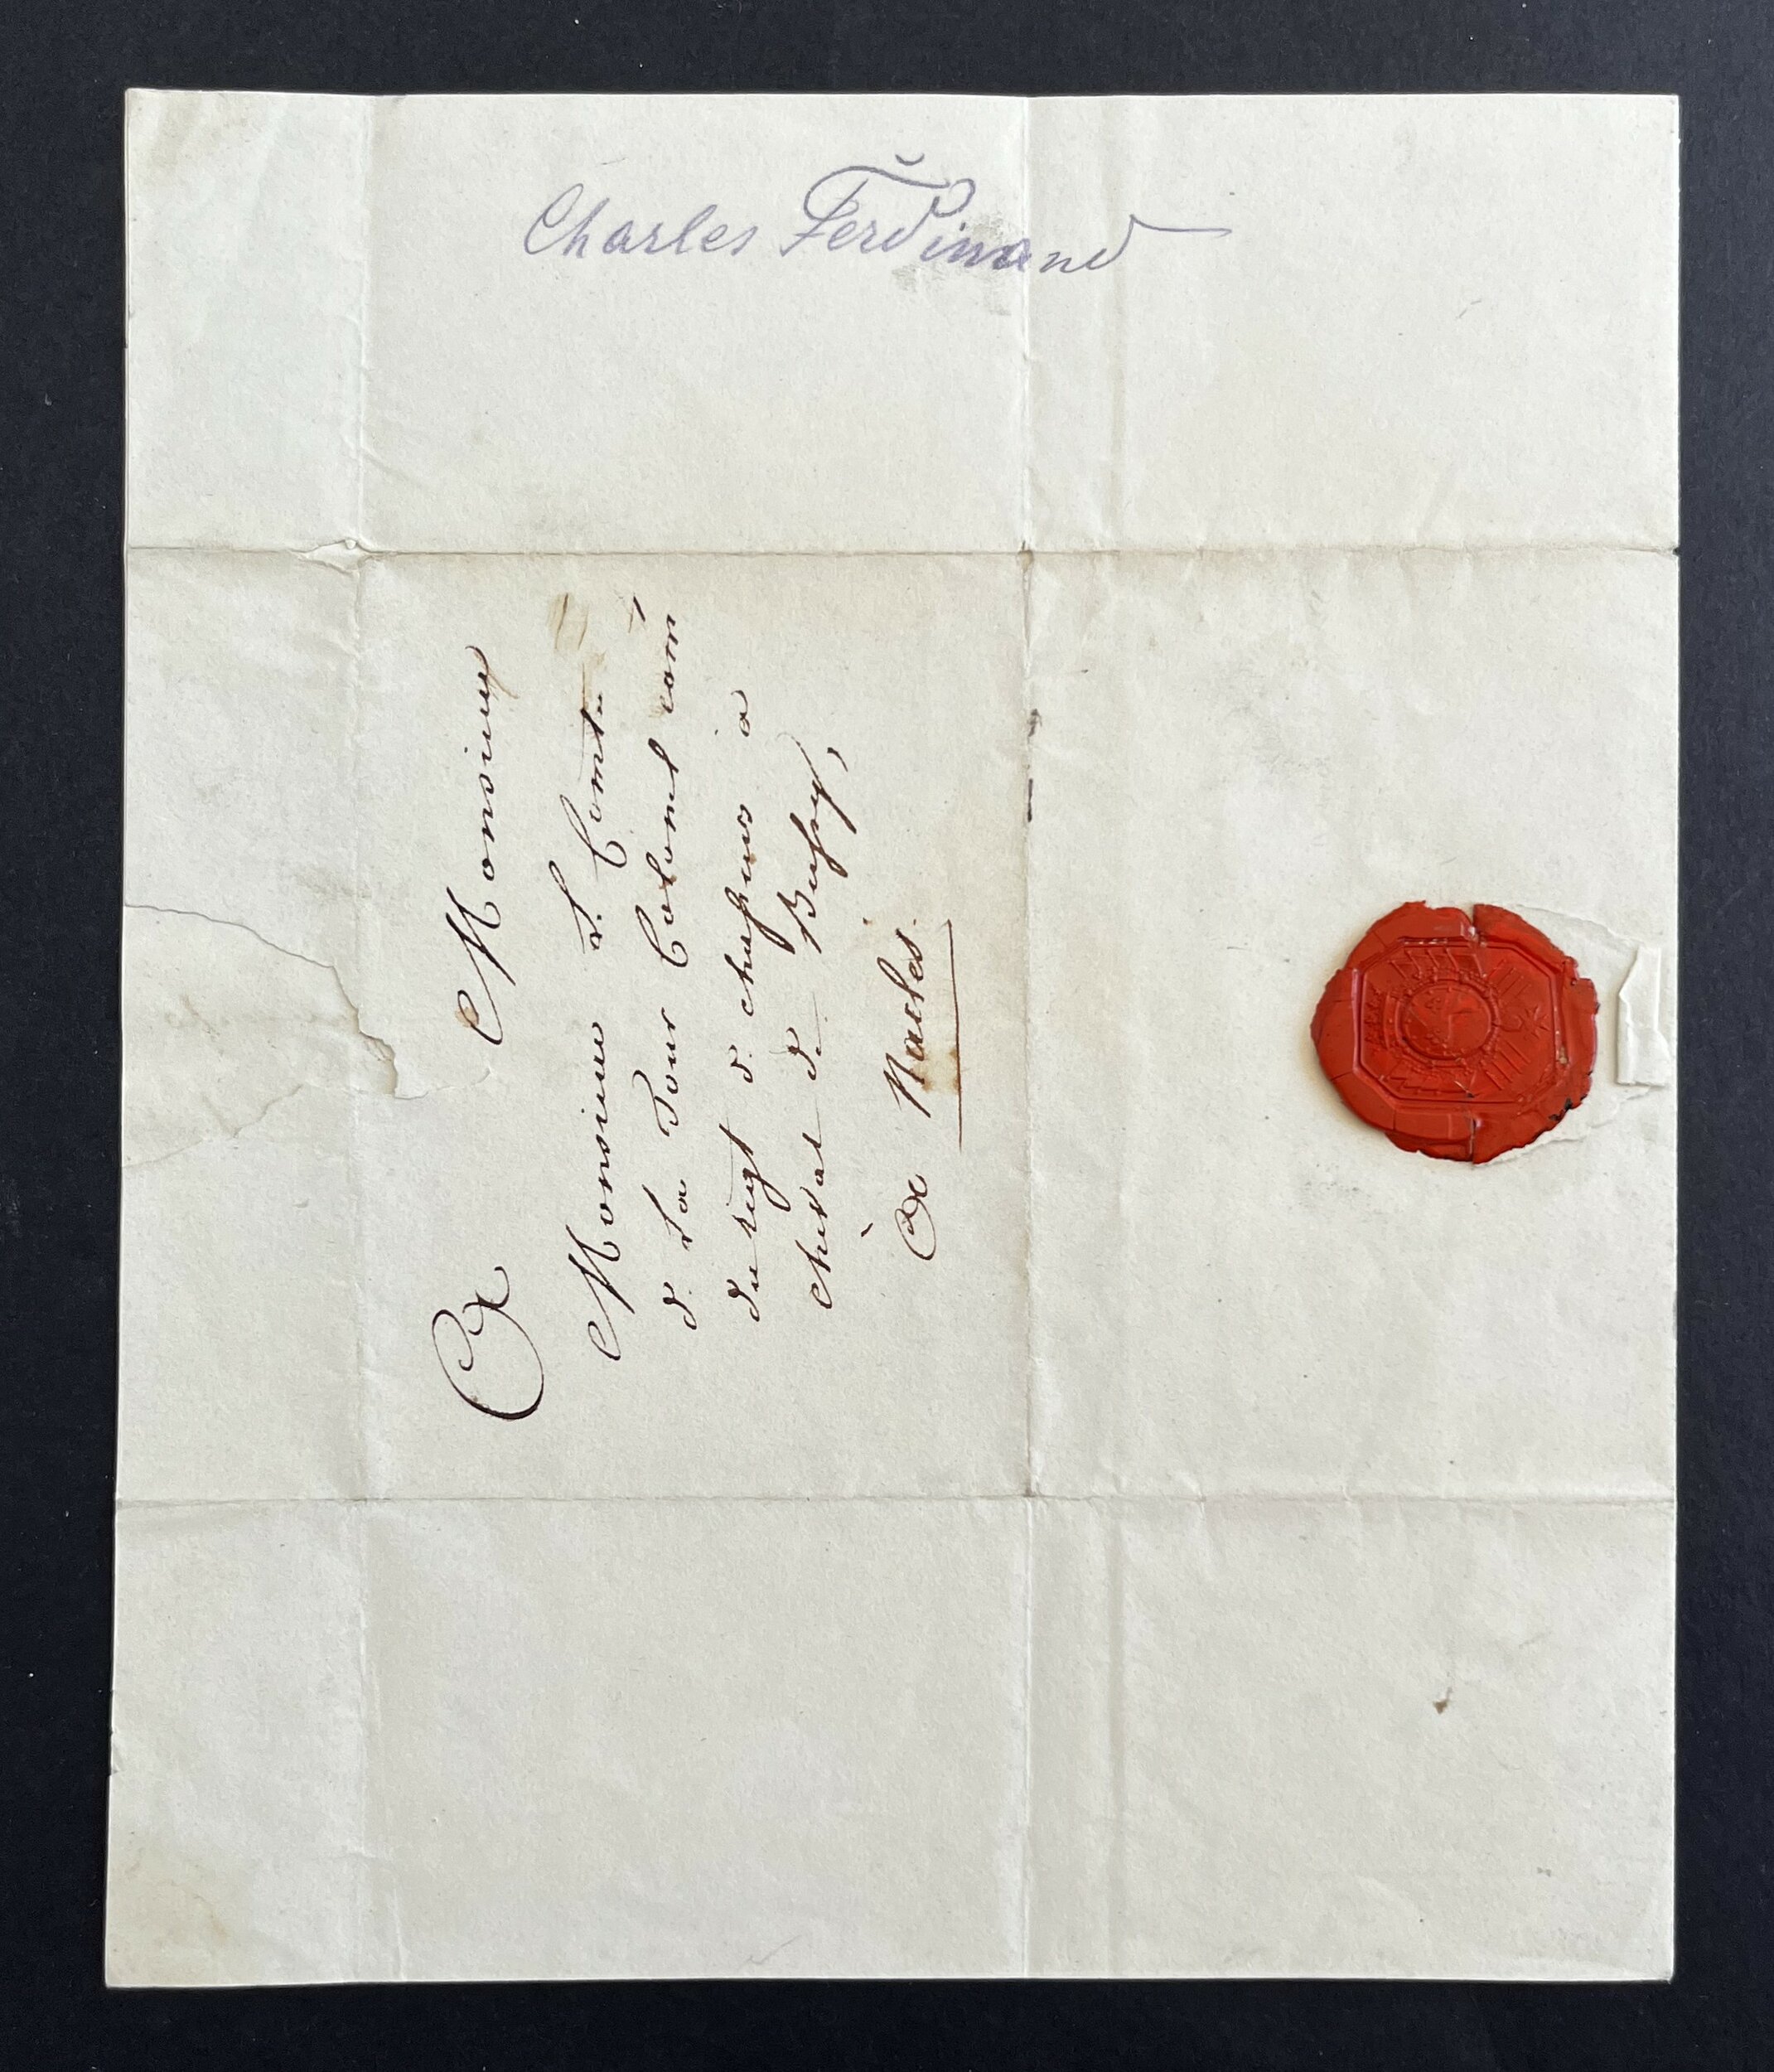 Charles Ferdinand
A Monsieur
Monsieur le Comte
de La Tour Colonel com
du regt de chasseurs à
cheval de Bussy,
à Naples.